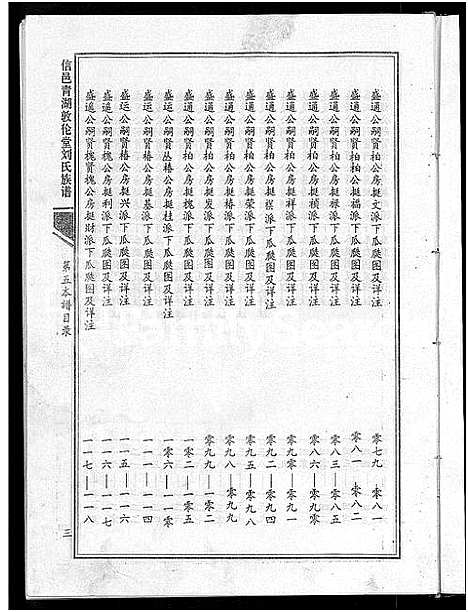 盛通公嗣贤柏公房挺文派下瓜瓞图及详注 零七九—零八一
盛通公嗣贤柏公房挺福派下瓜瓞图及详注 零八一—零八二
盛通公嗣贤柏公房挺禄派下瓜瓞图及详注 零八三—零八五
盛通公嗣贤柏公房挺祯派下瓜瓞图及详注 零八六—零九零
盛通公嗣贤柏公房挺祥派下瓜瓞图及详注 零九零—零九一
盛通公嗣贤柏公房挺祺派下瓜瓞图及详注 零九二—零九四
盛通公嗣贤柏公房挺荣派下瓜瓞图及详注 零九五—零九八
盛通公嗣贤柏公房挺椿派下瓜瓞图及详注 零九八—零九九
盛通公嗣贤柏公房挺发派下瓜瓞图及详注 零九九—一零二
盛通公嗣贤柏公房挺槐派下瓜瓞图及详注 一零二—一零五
盛运公嗣贤丛椿公房挺桂派下瓜瓞图及详注 一零六—一一零
盛运公嗣贤椿公房挺基派下瓜瓞图及详注 一一一—一一四
盛运公嗣贤椿公房挺兴派下瓜瓞图及详注 一一五—一一六
盛遥公嗣贤槐公房挺利派下瓜瓞图及详注 一一六—一一七
盛遥公嗣贤槐贤槐公房挺财派下瓜瓞图及详注 一一七—一一八
信邑青湖敦伦堂刘氏族谱
第五本谱目录
三